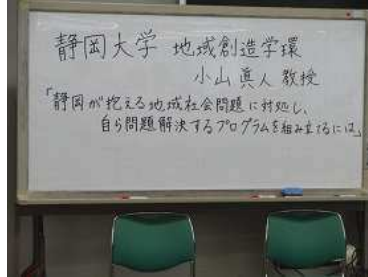 静岡大学 地域創造学環
小山眞人 教授
「静岡が抱える地域社会問題に対処し、
自ら問題解決するプログラムを組み立てるには」